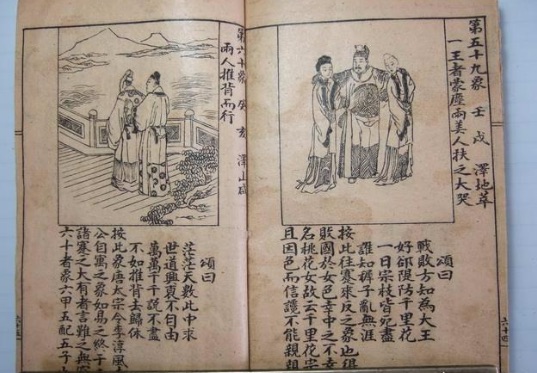 第五十九象 壬戌 澤地萃
一王者蒙塵兩美人扶之大哭
頌曰
戰敗方知為大王
好郤隄防千里花
一日宗枝皆殄盡
誰知稗子亂無涯
按此往蹇來反之象也得
敗國於女色幸中之不幸
名桃花女故云千里花字
且因色而信讒不能親親
六十四
第六十象 癸亥 澤山咸
兩人推背而行
頌曰
茫茫天數此中求
世道興衰不自由
萬萬千千說不盡
不如推背去歸休
按此象唐太宗令李淳風
公自寓之象如易之終于
諸蹇之大有者言雖之無
六十者象六甲五配五子